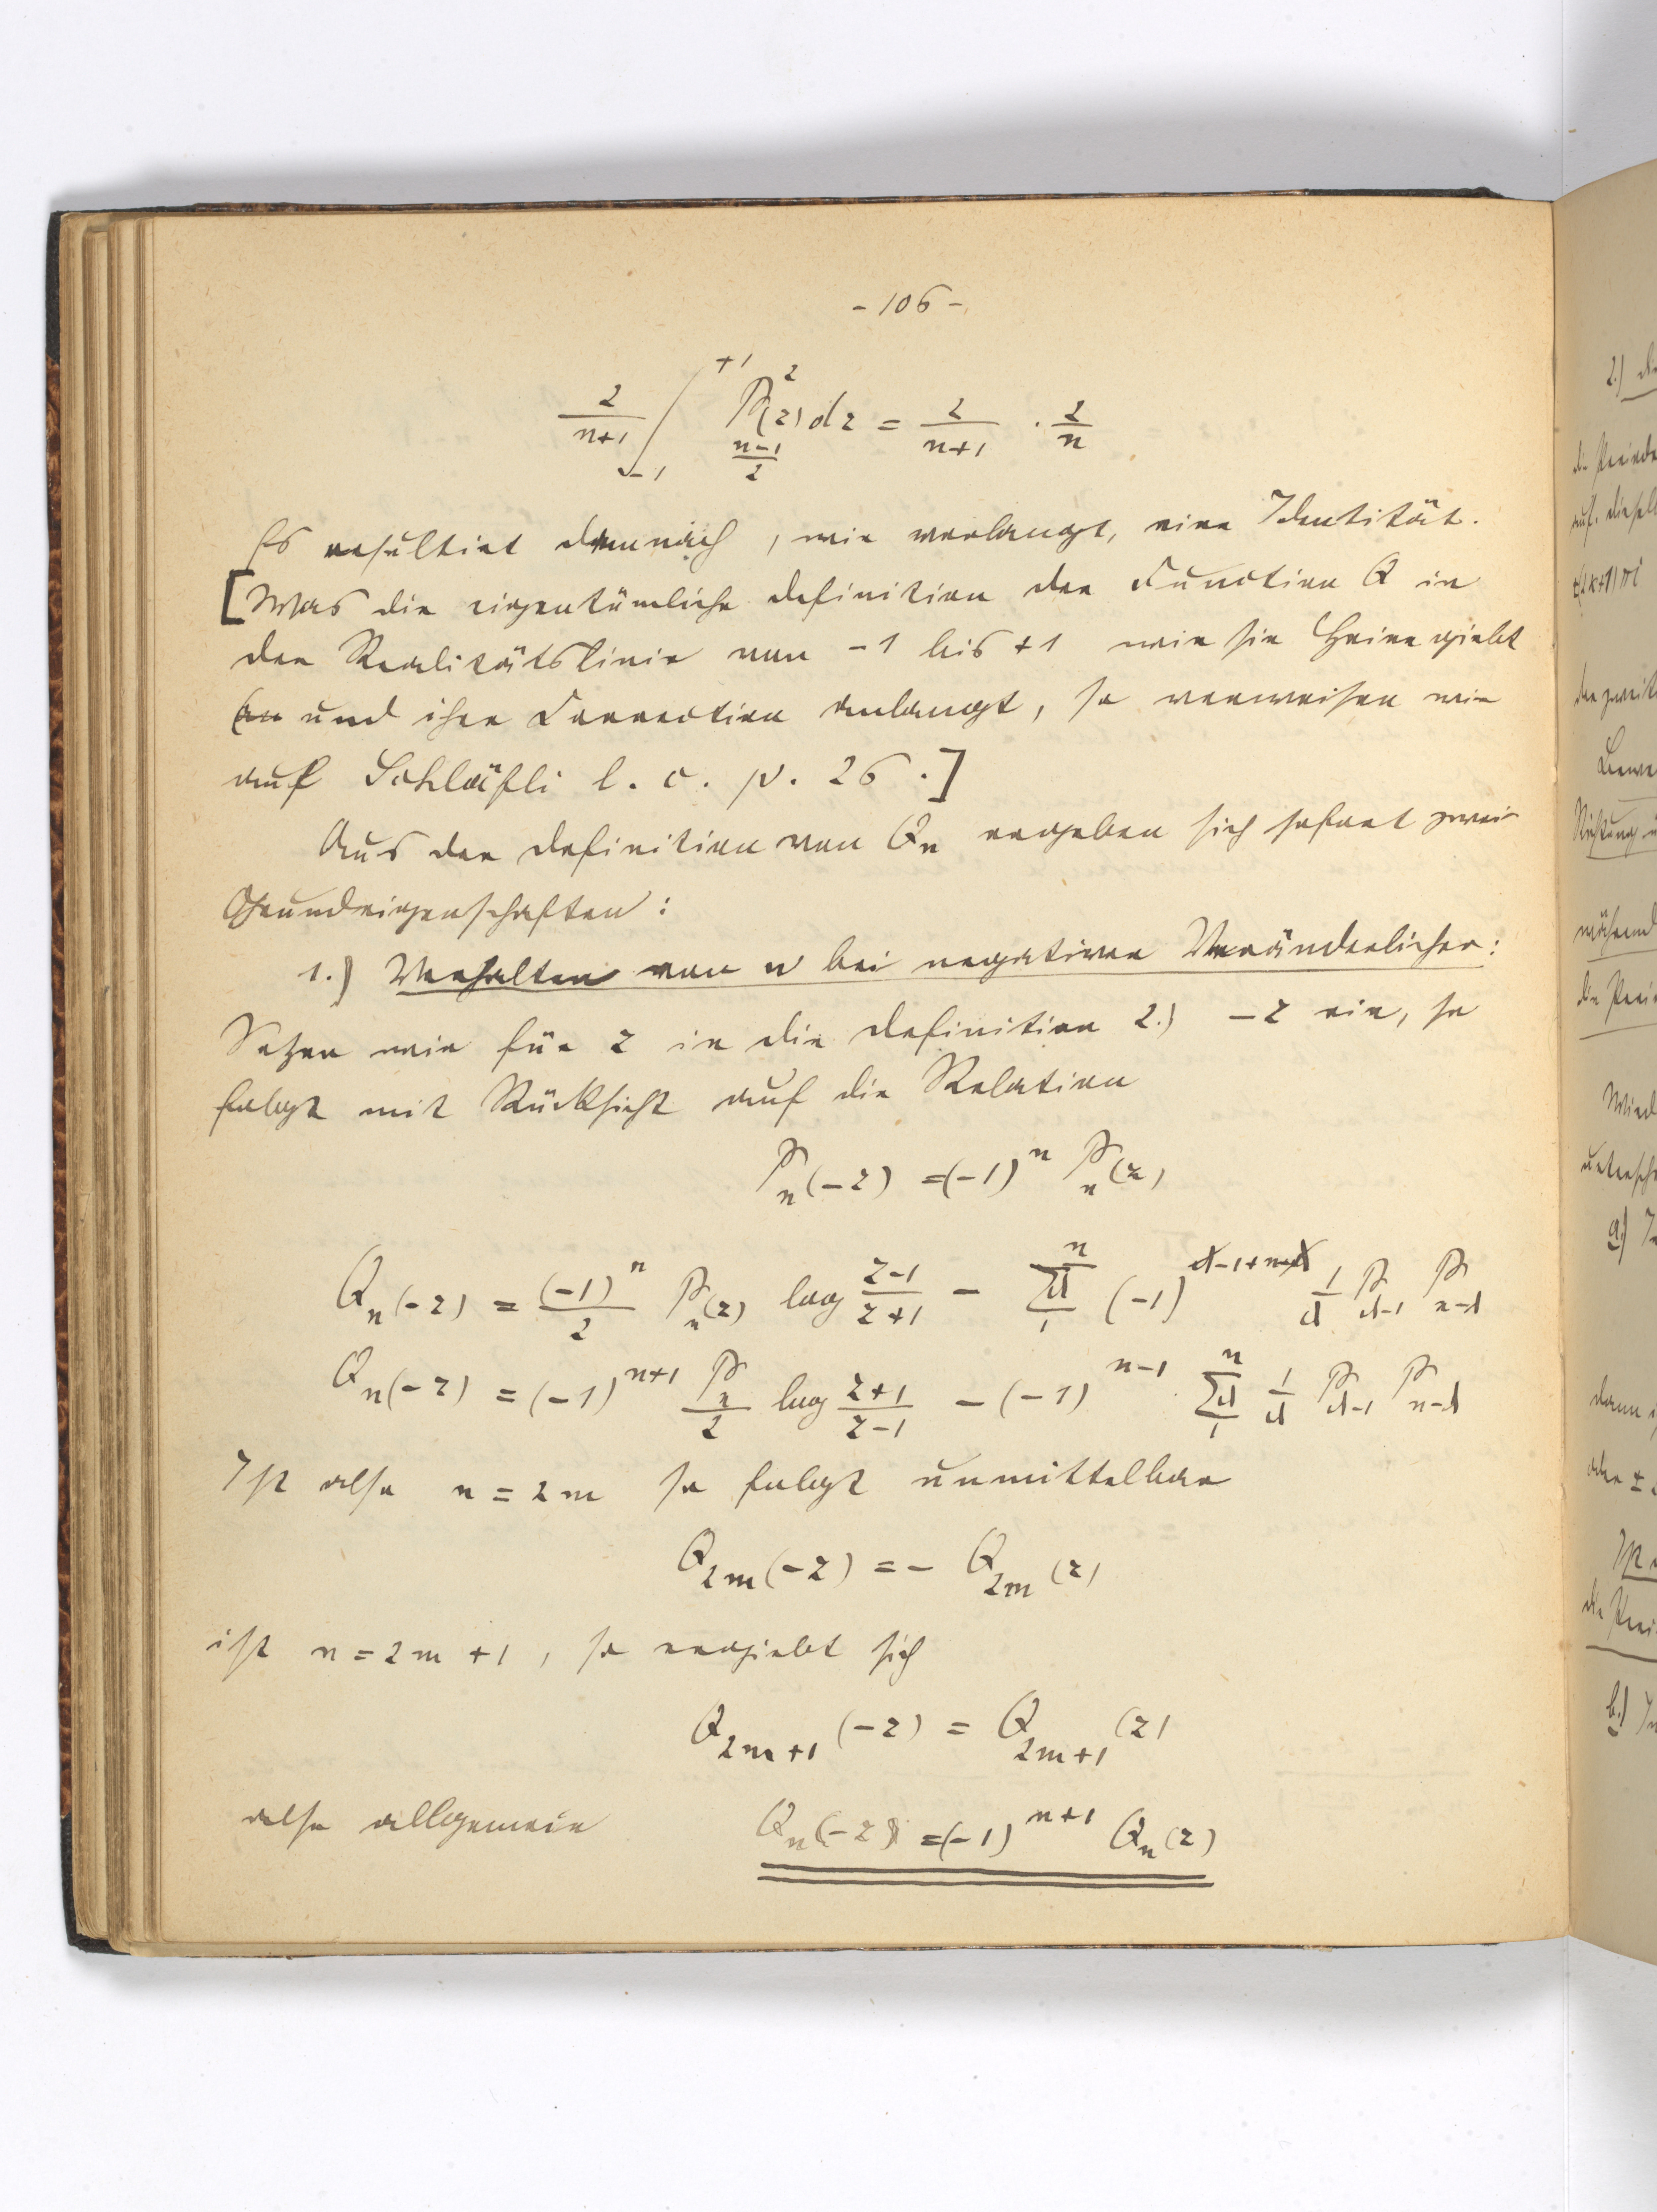 - 106 -
\frac{2}{n+1} \int_{-1}^{+1} P^2_{\frac{n-1}{2}}(z) dz = \frac{2}{n+1} \cdot \frac{2}{n}
Es resultirt demnach, wie verlangt, eine Identität.
[Was die eigentümliche Definition der Function Q in
der Realitätslinie von -1 bis +1 wie sie Heine giebt
und ihre Correction anlangt, so verweisen wir
auf Schläfli l. c. p. 26.]
Aus der Definition von Q_n ergeben sich sofort zwei
Grundeigenschaften:
1.) Verhalten von n bei negativer Veränderlicher:
Setzen wir für z in die Definition 2.) -z ein, so
folgt mit Rücksicht auf die Relation
P_n(-z) = (-1)^n P_n(z)
Q_n(-z) = \frac{(-1)^n}{2} P_n(z) log \frac{z-1}{z+1} - \sum_1^n λ (-1)^{λ-1+n-λ} \frac{1}{λ} P_{λ-1} P_{n-λ}
Q_n(-z) = (-1)^{n+1} \frac{P_n}{2} log \frac{z+1}{z-1} - (-1)^{n-1} \sum_1^n λ \frac{1}{λ} P_{λ-1} P_{n-λ}
Ist also n = 2m so folgt unmittelbar
Q_{2m}(-z) = - Q_{2m}(z)
ist n = 2m + 1, so ergiebt sich
Q_{2m+1}(-z) = Q_{2m+1}(z)
also allgemein Q_n(-z) = (-1)^{n+1} Q_n(z)